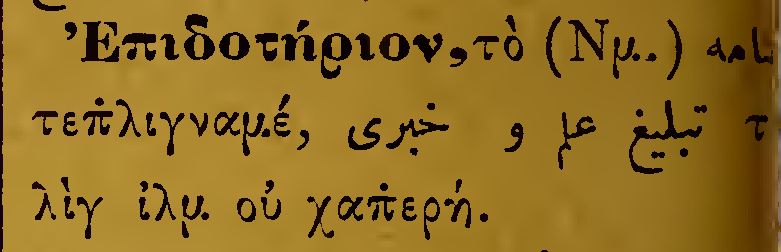 Ἐπιδοτήριον, τὸ (Νμ.) نامه
τεπ̇λιγναμέ, تبليغ علم و خبری τ
λὶγ ἰλμ οὐ χαπ̇ερή.